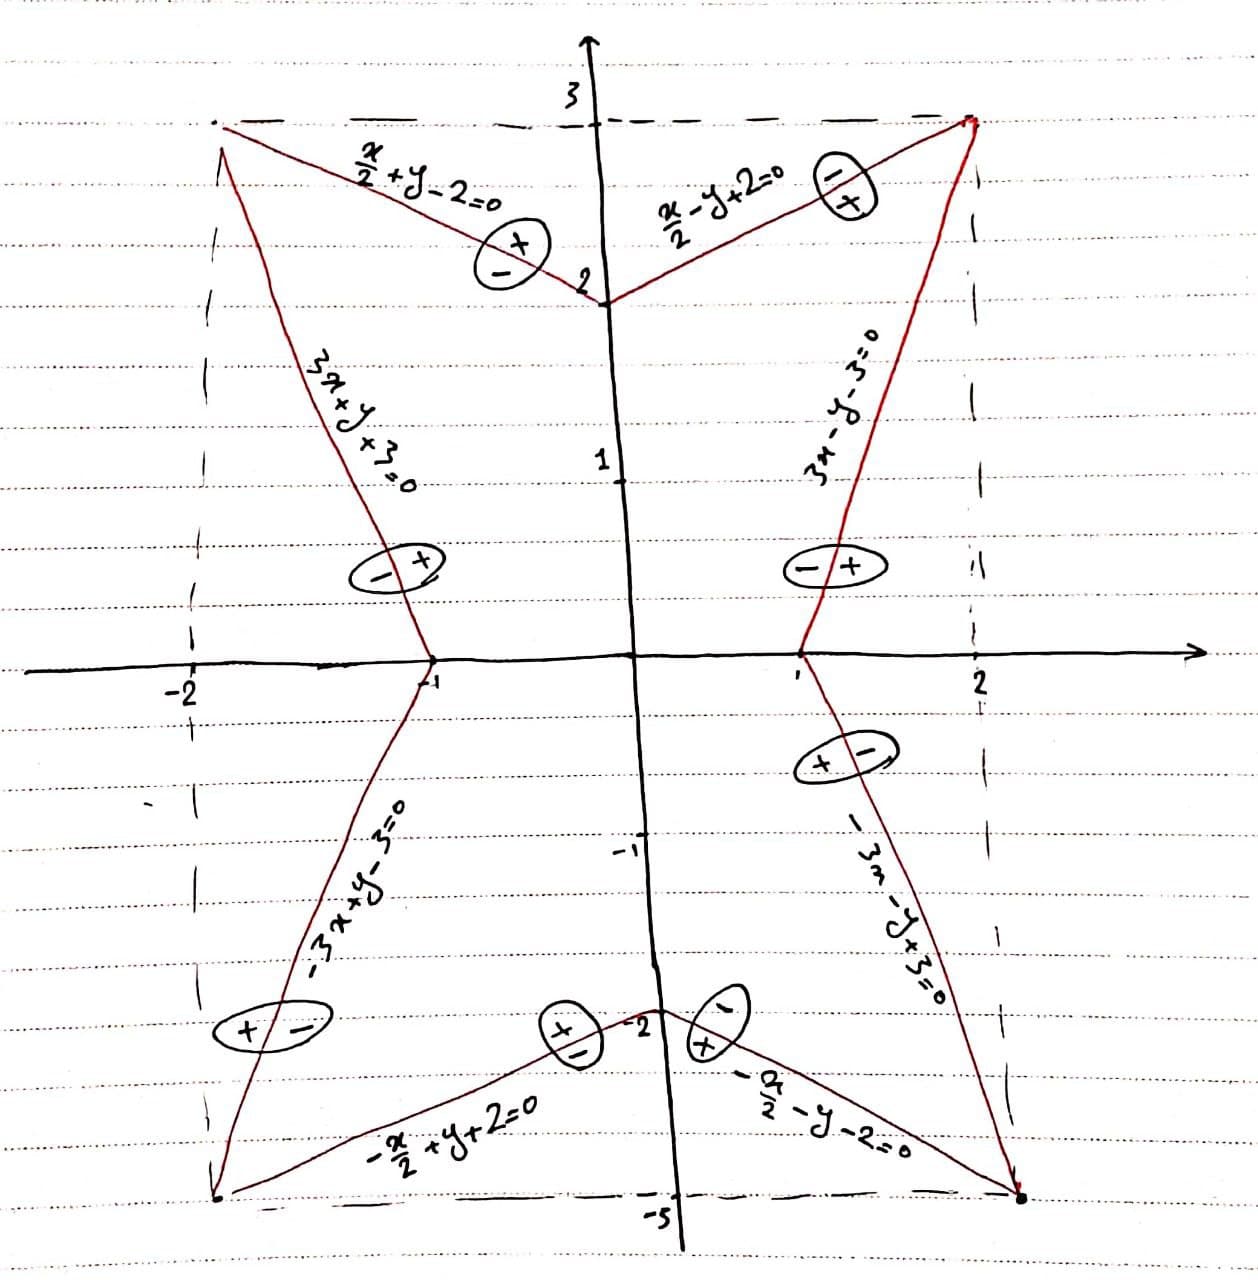 3
x/2 + y - 2 = 0
x/2 - y + 2 = 0
- +
+ -
2
3x + y + 3 = 0
3x - y - 3 = 0
1
- +
- +
-2
-1
1
2
+ -
-1
-3x + y - 3 = 0
-3x - y + 3 = 0
+ -
+ -
-2
- +
-x/2 + y + 2 = 0
-x/2 - y - 2 = 0